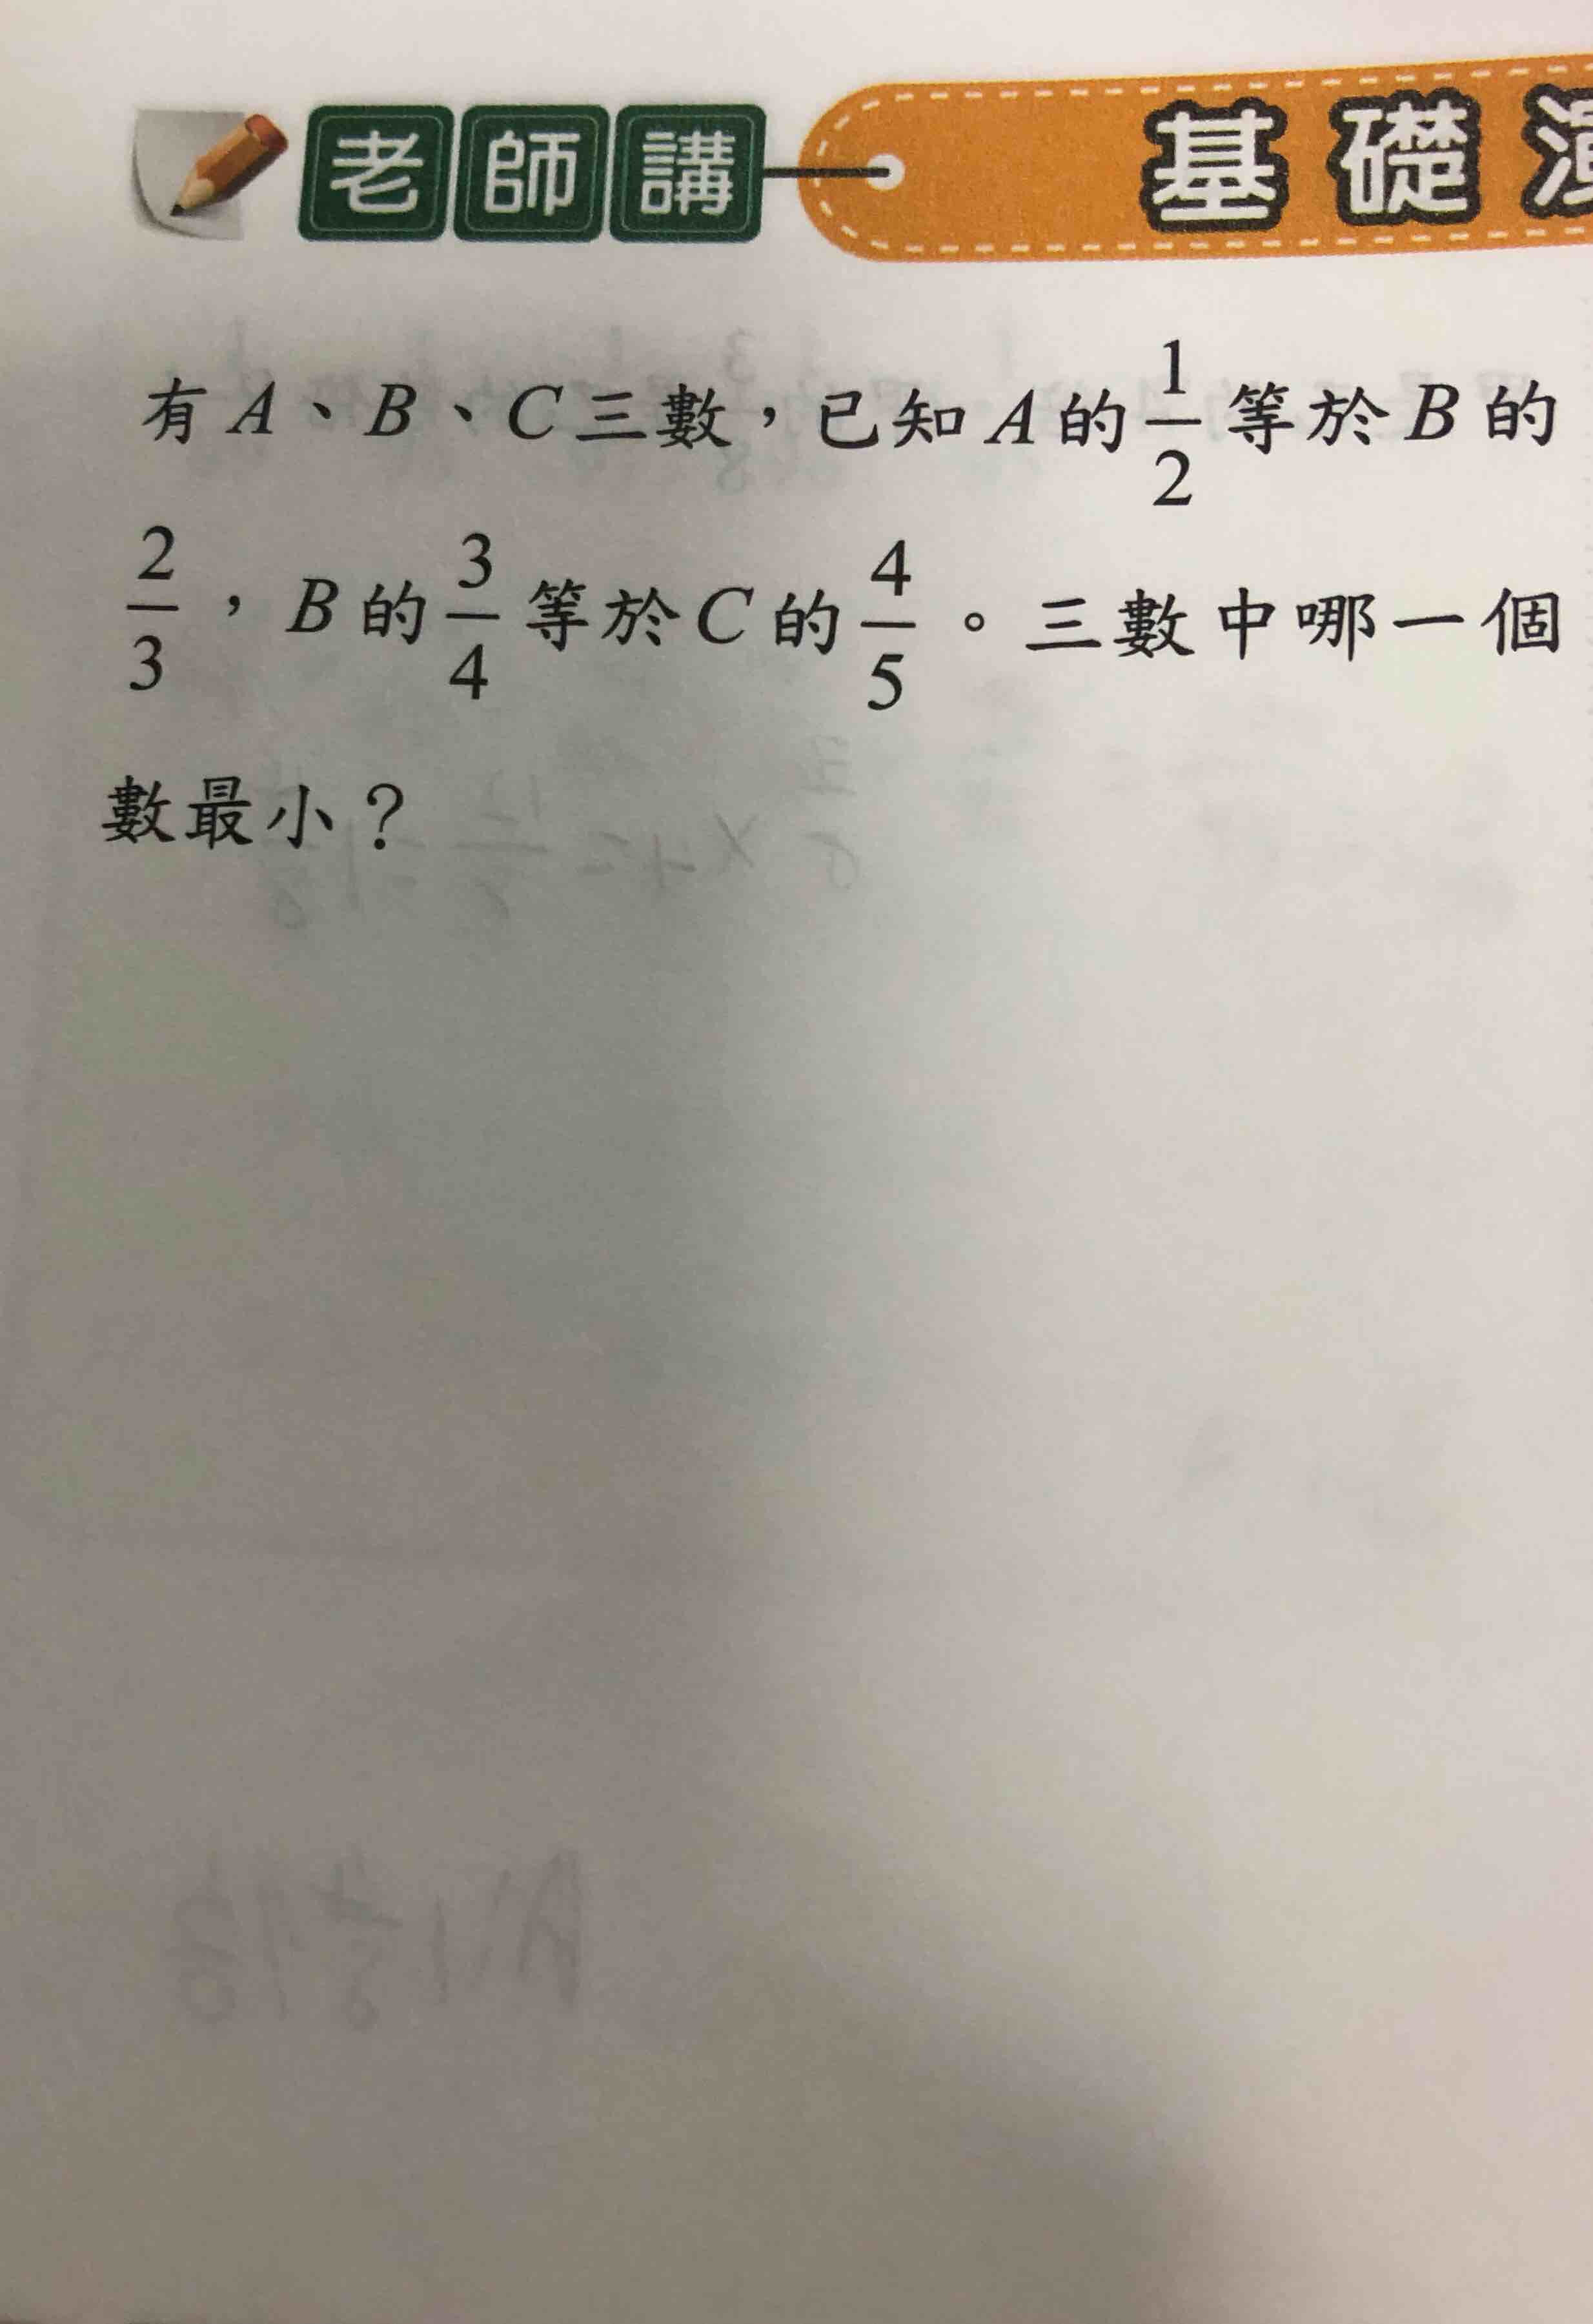 老師講 基礎
有A、B、C三數，已知A的1/2等於B的
2/3，B的3/4等於C的4/5。三數中哪一個
數最小？